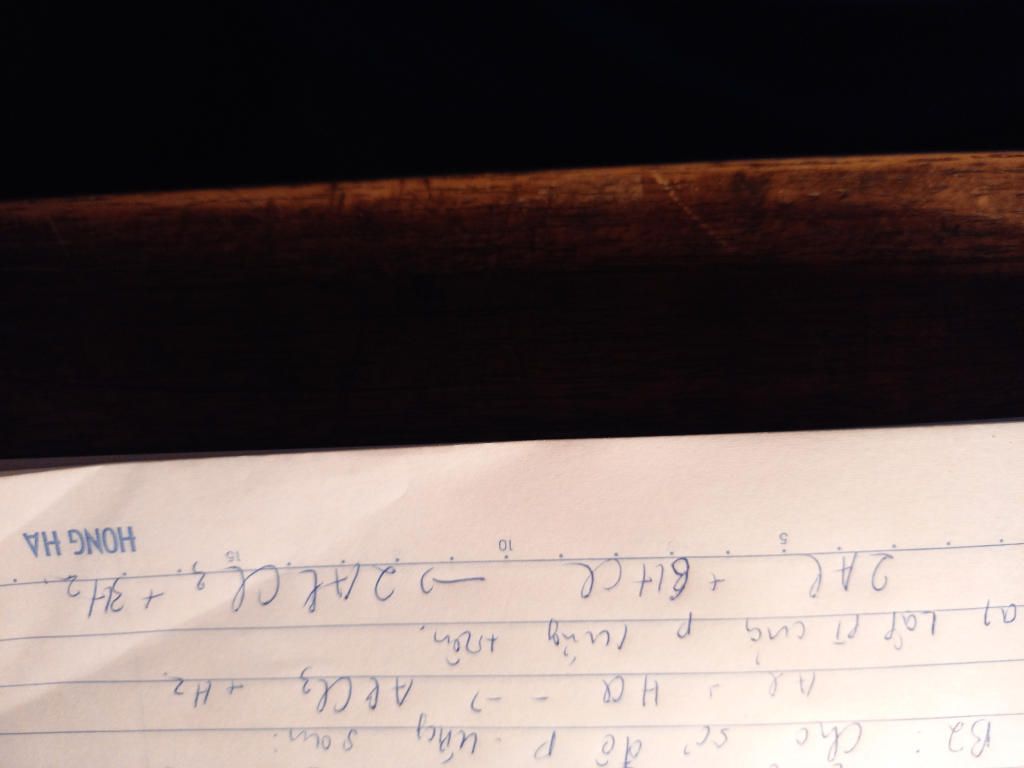 B2: Cho sơ đồ p.ứng sau:
Al + HCl --> AlCl3 + H2.
a, Lập PT của p/ứng trên.
2Al + 6HCl -> 2AlCl3 + 3H2.
5 10 15
HONG HA